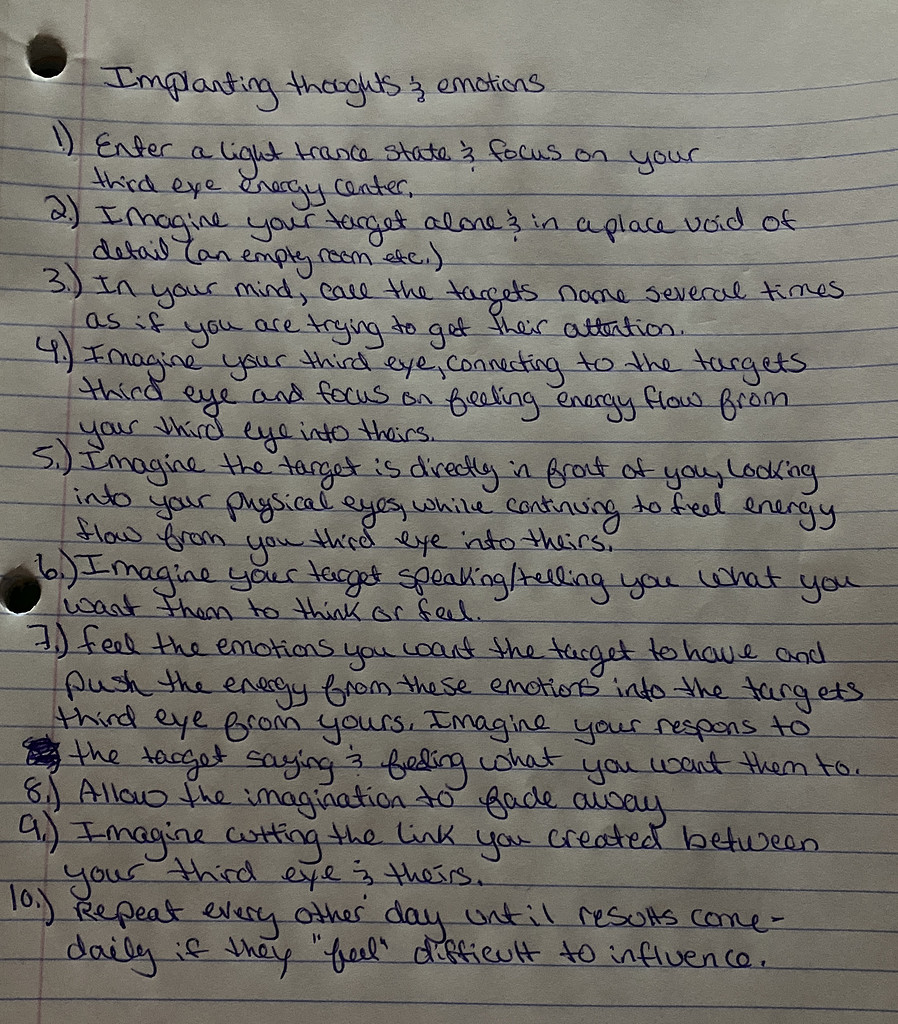 Implanting thoughts & emotions
1) Enter a light trance state & focus on your
third eye energy center.
2.) Imagine your target alone & in a place void of
detail (an empty room etc.)
3.) In your mind, call the targets name several times
as if you are trying to get their attention.
4.) Imagine your third eye, connecting to the targets
third eye and focus on feeling energy flow from
your third eye into theirs.
5.) Imagine the target is directly in front of you, looking
into your physical eyes, while continuing to feel energy
flow from you third eye into theirs.
6.) Imagine your target speaking/telling you what you
want them to think or feel.
7.) feel the emotions you want the target to have and
push the energy from these emotions into the targets
third eye from yours. Imagine your respons to
the target saying & feeling what you want them to.
8.) Allow the imagination to fade away
9.) Imagine cutting the link you created between
your third eye & theirs.
10.) Repeat every other day until results come-
daily if they "feel" difficult to influence.